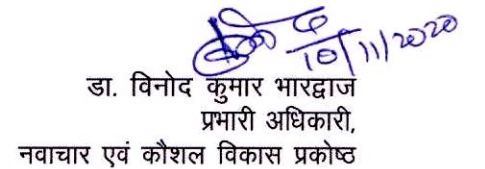 10/11/2020
डा. विनोद कुमार भारद्वाज
प्रभारी अधिकारी,
नवाचार एवं कौशल विकास प्रकोष्ठ